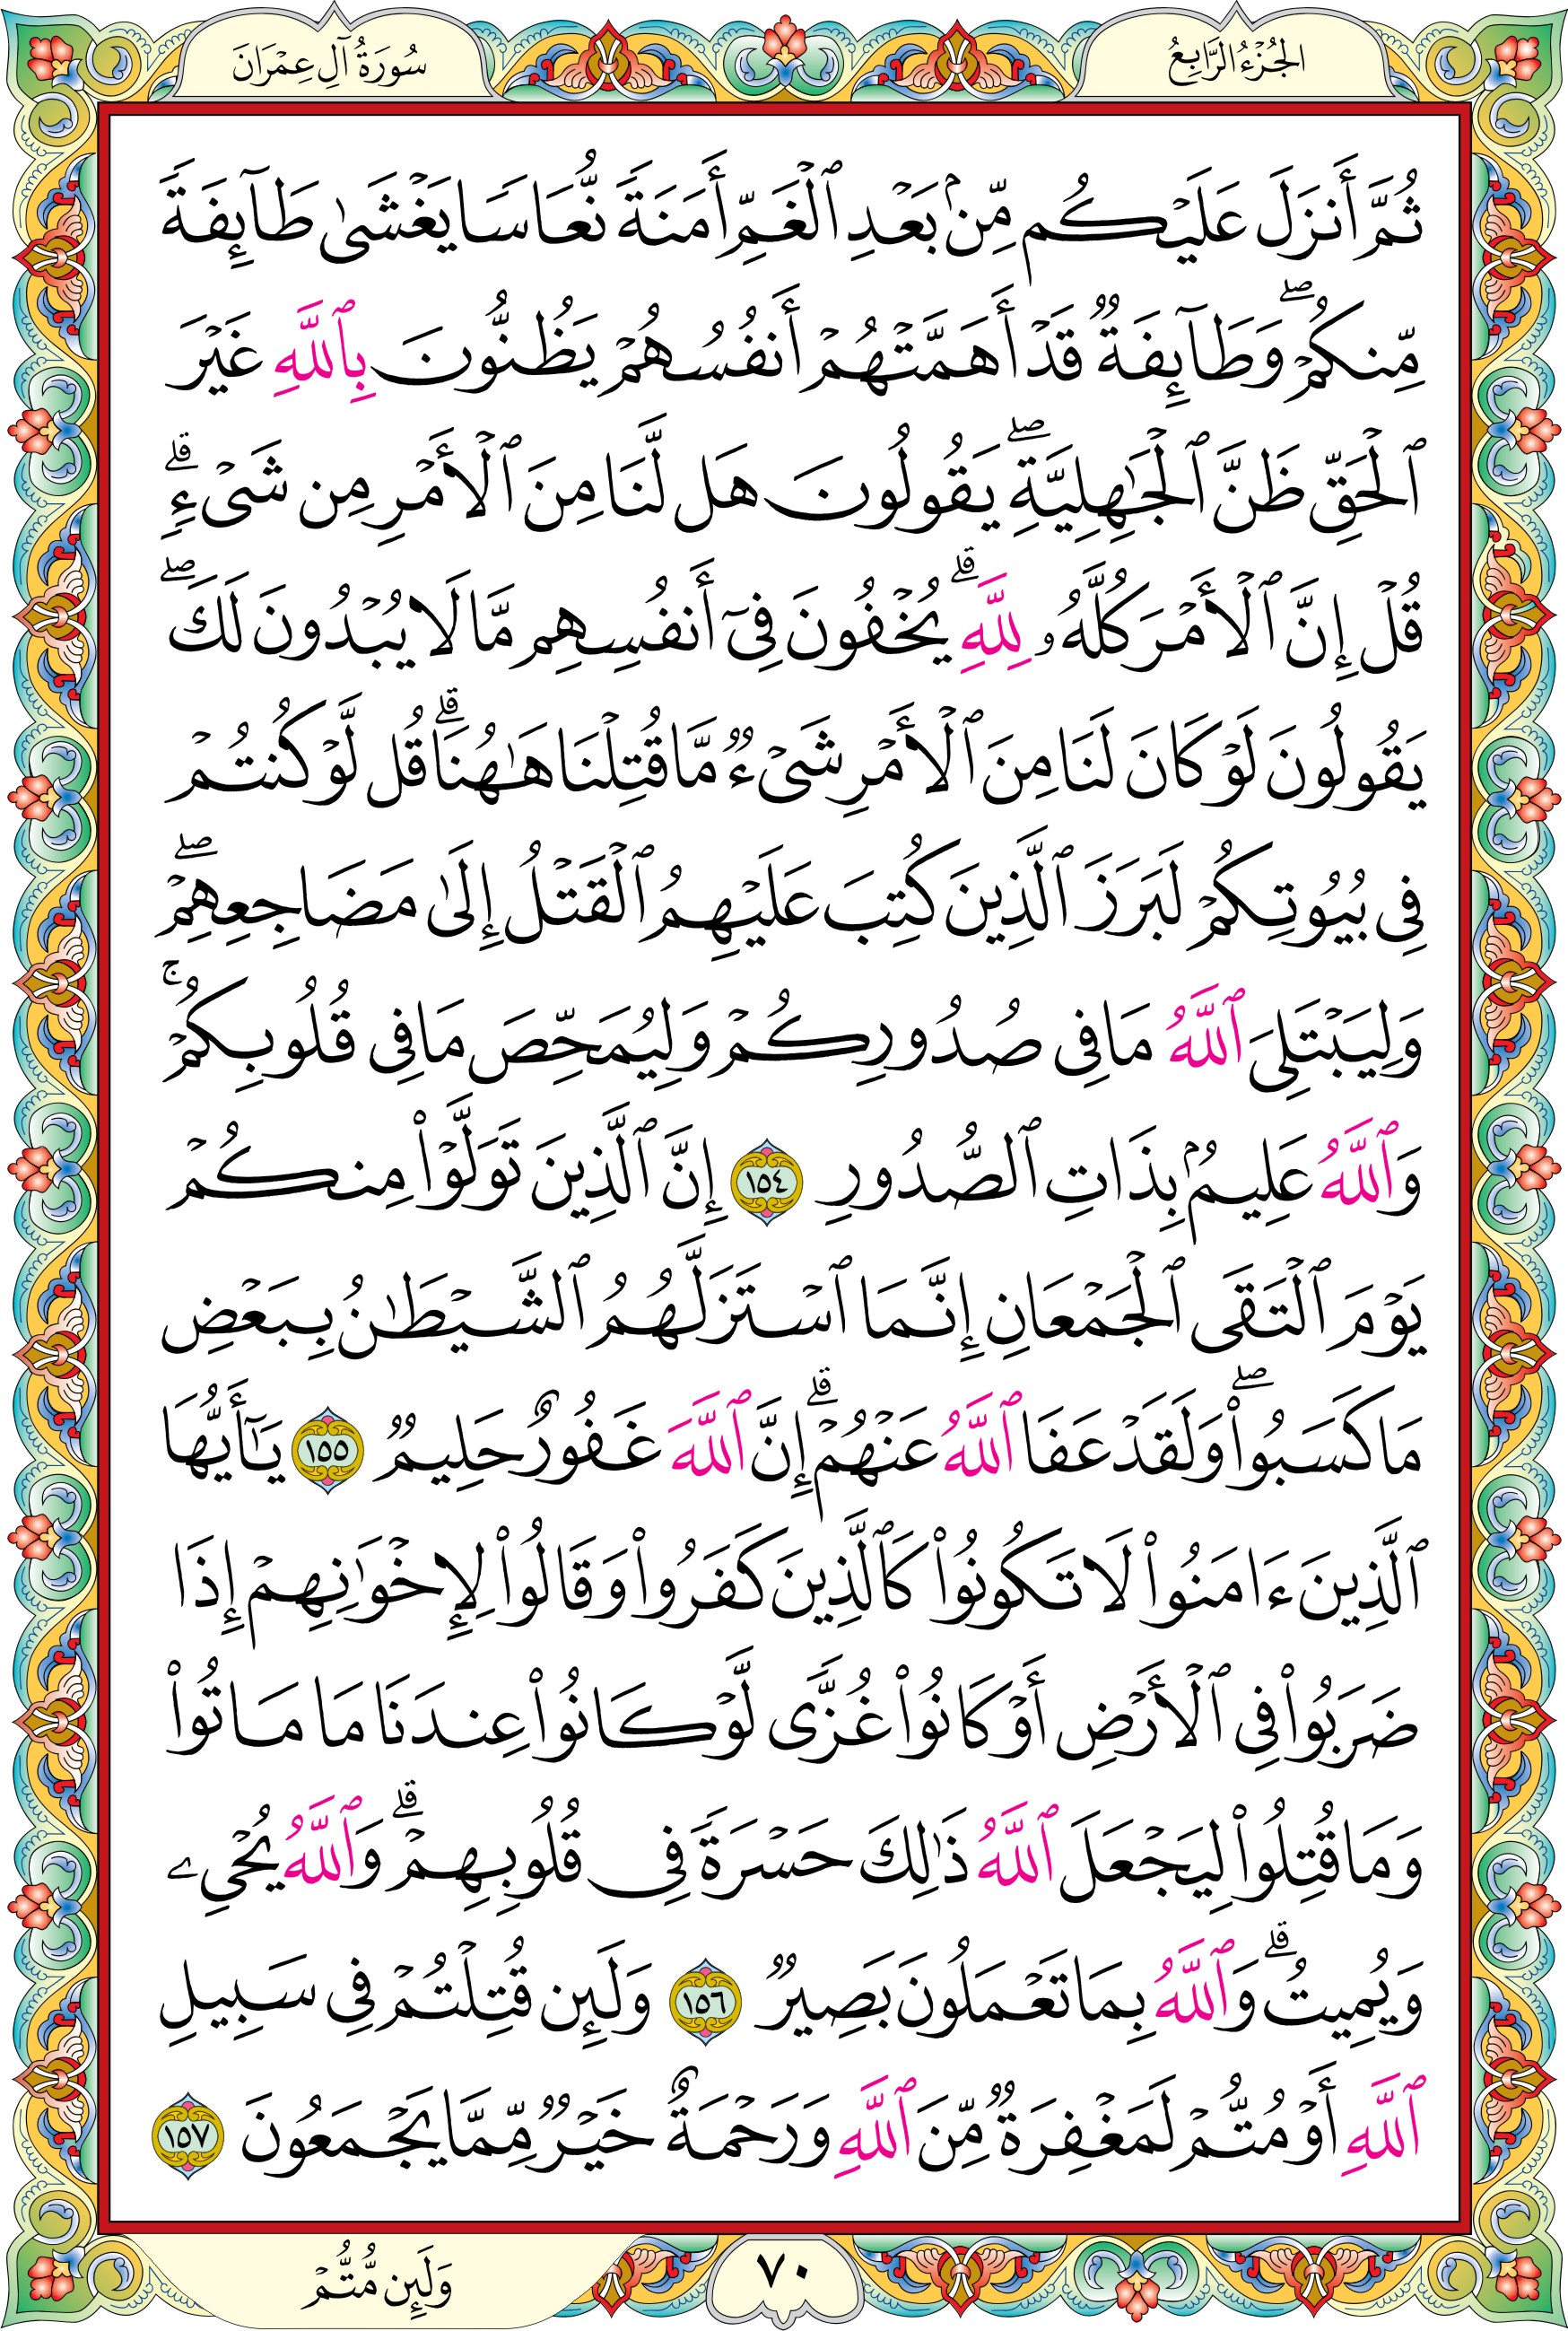 الجُزْءُ الرَّابِعُ
سُورَةُ آلِ عِمْرَانَ
ثُمَّ أَنزَلَ عَلَيْكُم مِّنۢ بَعْدِ ٱلْغَمِّ أَمَنَةً نُّعَاسًا يَغْشَىٰ طَآئِفَةً
مِّنكُمْ ۖ وَطَآئِفَةٌ قَدْ أَهَمَّتْهُمْ أَنفُسُهُمْ يَظُنُّونَ بِٱللَّهِ غَيْرَ
ٱلْحَقِّ ظَنَّ ٱلْجَٰهِلِيَّةِ ۖ يَقُولُونَ هَل لَّنَا مِنَ ٱلْأَمْرِ مِن شَىْءٍ ۗ
قُلْ إِنَّ ٱلْأَمْرَ كُلَّهُۥ لِلَّهِ ۗ يُخْفُونَ فِىٓ أَنفُسِهِم مَّا لَا يُبْدُونَ لَكَ ۖ
يَقُولُونَ لَوْ كَانَ لَنَا مِنَ ٱلْأَمْرِ شَىْءٌ مَّا قُتِلْنَا هَٰهُنَا ۗ قُل لَّوْ كُنتُمْ
فِى بُيُوتِكُمْ لَبَرَزَ ٱلَّذِينَ كُتِبَ عَلَيْهِمُ ٱلْقَتْلُ إِلَىٰ مَضَاجِعِهِمْ ۖ
وَلِيَبْتَلِىَ ٱللَّهُ مَا فِى صُدُورِكُمْ وَلِيُمَحِّصَ مَا فِى قُلُوبِكُمْ ۚ
وَٱللَّهُ عَلِيمٌۢ بِذَاتِ ٱلصُّدُورِ ١٥٤ إِنَّ ٱلَّذِينَ تَوَلَّوْا۟ مِنكُمْ
يَوْمَ ٱلْتَقَى ٱلْجَمْعَانِ إِنَّمَا ٱسْتَزَلَّهُمُ ٱلشَّيْطَٰنُ بِبَعْضِ
مَا كَسَبُوا۟ ۖ وَلَقَدْ عَفَا ٱللَّهُ عَنْهُمْ ۗ إِنَّ ٱللَّهَ غَفُورٌ حَلِيمٌ ١٥٥ يَٰٓأَيُّهَا
ٱلَّذِينَ ءَامَنُوا۟ لَا تَكُونُوا۟ كَٱلَّذِينَ كَفَرُوا۟ وَقَالُوا۟ لِإِخْوَٰنِهِمْ إِذَا
ضَرَبُوا۟ فِى ٱلْأَرْضِ أَوْ كَانُوا۟ غُزًّى لَّوْ كَانُوا۟ عِندَنَا مَا مَاتُوا۟
وَمَا قُتِلُوا۟ لِيَجْعَلَ ٱللَّهُ ذَٰلِكَ حَسْرَةً فِى قُلُوبِهِمْ ۗ وَٱللَّهُ يُحْىِۦ
وَيُمِيتُ ۗ وَٱللَّهُ بِمَا تَعْمَلُونَ بَصِيرٌ ١٥٦ وَلَئِن قُتِلْتُمْ فِى سَبِيلِ
ٱللَّهِ أَوْ مُتُّمْ لَمَغْفِرَةٌ مِّنَ ٱللَّهِ وَرَحْمَةٌ خَيْرٌ مِّمَّا يَجْمَعُونَ ١٥٧
٧٠
وَلَئِن مُّتُّمْ